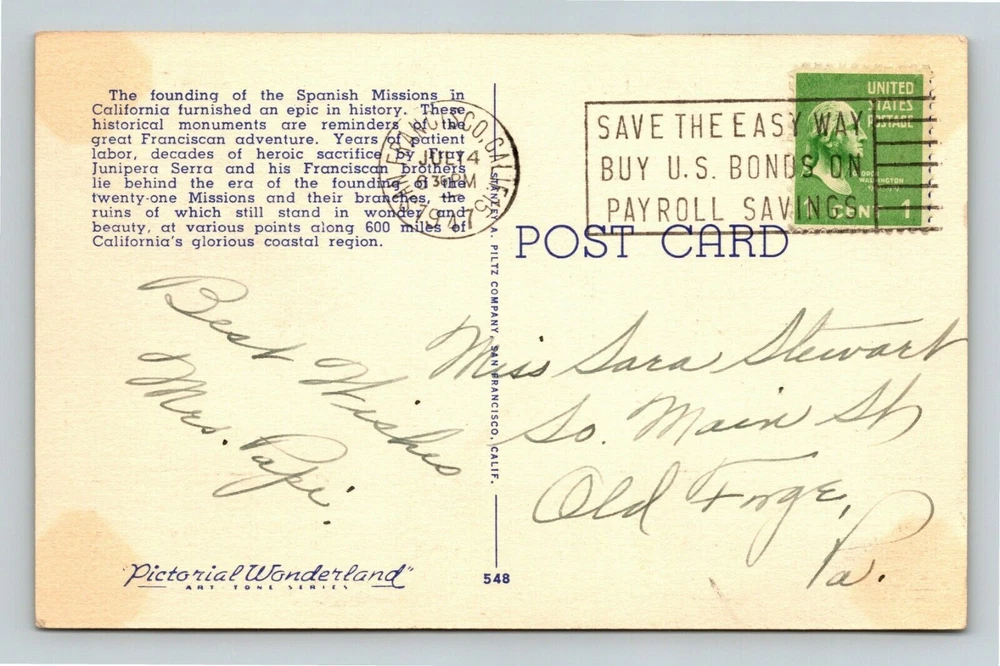 The founding of the Spanish Missions in
California furnished an epic in history. These
historical monuments are reminders of the
great Franciscan adventure. Years of patient
labor, decades of heroic sacrifice by Fray
Junipera Serra and his Franciscan brothers
lie behind the era of the founding of the
twenty-one Missions and their branches, the
ruins of which still stand in wonder and
beauty, at various points along 600 miles of
California's glorious coastal region.
SAN FRANCISCO, CALIF.
JUL 14
630 PM
1947
SAVE THE EASY WAY
BUY U.S. BONDS ON
PAYROLL SAVINGS
UNITED
STATES
POSTAGE
GEORGE
WASHINGTON
1 CENT 1
POST CARD
STANLEY A. PILTZ COMPANY, SAN FRANCISCO, CALIF.
Best Wishes
Mrs. Papi.
Miss Sara Stewart
So. Main St
Old Forge,
Pa.
"Pictorial Wonderland"
ART-TONE SERIES
548